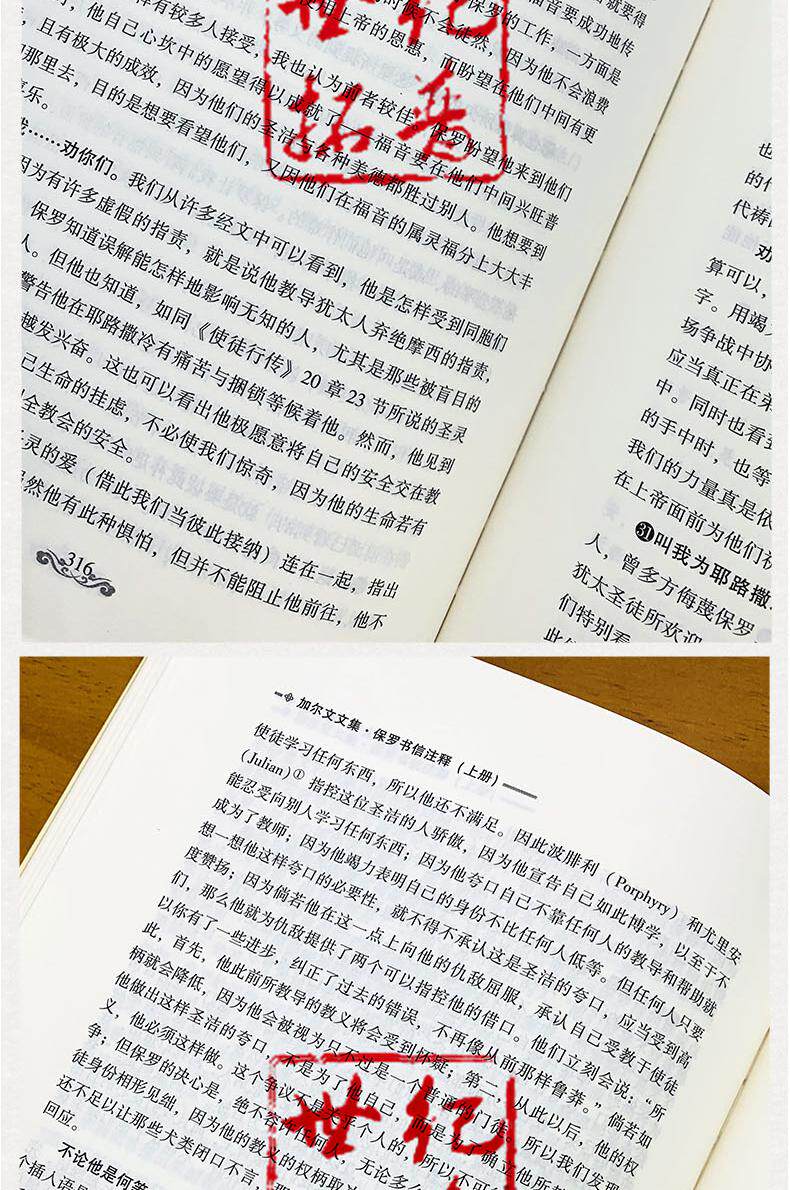 就要得
福音要成功地传
保罗的工作，一方面是
的时候不会徒然，因为他不会浪费
上帝的恩惠，而盼望在他们中间有更
样有较多人接受。我也认为前者较佳。保罗盼望他来到他们
时，他自己心坎中的愿望得以成就了——福音要在他们中间兴旺普
，且有极大的成效，因为他们的圣洁与各种美德都胜过别人。他想要到
那里去，目的是想要看望他们，又因他们在福音的属灵福分上大大丰
喜乐。
我……劝你们。我们从许多经文中可以看到，他是怎样受到同胞们
因为有许多虚假的指责，就是说他教导犹太人弃绝摩西的指责，
保罗知道误解能怎样地影响无知的人，尤其是那些被盲目的
人。但他也知道，如同《使徒行传》20 章 23 节所说的圣灵
警告他在耶路撒冷有痛苦与捆锁等候着他。然而，他见到
越发兴奋。这也可以看出他极愿意将自己的安全交在教
己生命的挂虑，不必使我们惊奇，因为他的生命若有
全教会的安全。
圣灵的爱（借此我们当彼此接纳）连在一起，指出
虽然他有此种惧怕，但并不能阻止他前往，他不
316
世纪
拓普
也
的
代祷
劝
算可以，
字。用竭
场争战中协
应当真正在弟
中。同时也看到
的手中时，也等
我们的力量真是依
在上帝面前为他们
㉛叫我为耶路撒
人，曾多方侮蔑保罗
犹太圣徒所欢迎
们特别看
加尔文文集·保罗书信注释（上册）
使徒学习任何东西，所以他还不满足。因此波腓利（Porphyry）和尤里安
（Julian）① 指控这位圣洁的人骄傲，因为他宣告自己如此博学，以至于不
能忍受向别人学习任何东西；因为他夸口自己不靠任何人的教导和帮助就
成为了教师；因为他竭力表明自己的身份不比任何人低等。但任何人只要
想一想他这样夸口的必要性，就不得不承认这是圣洁的夸口，应当受到高
度赞扬；因为倘若他在这一点上向他的仇敌屈服，承认自己受教于使徒
们，那么他就为仇敌提供了两个可以指控他的借口。他们立刻会说：“所
以你有了一些进步，纠正了过去的错误，不再像从前那样鲁莽。”倘若如
此，首先，他此前所教导的教义将会受到怀疑；第二，从此以后，他的权
柄就会降低，因为他会被视为只不过是一个普通的门徒。所以我们发现
他做出这样圣洁的夸口，不是为了他自己，而是为了确立他所教
义，他必须这样做。这个争议不是关乎个人的，所以不可
争；但保罗的决心是，绝不容许任何人，无论多
徒身份相形见绌，因为他的教义的权柄取
还不足以让那些犬类闭口不言，
回应。
不论他是何等
个插入语是
世纪